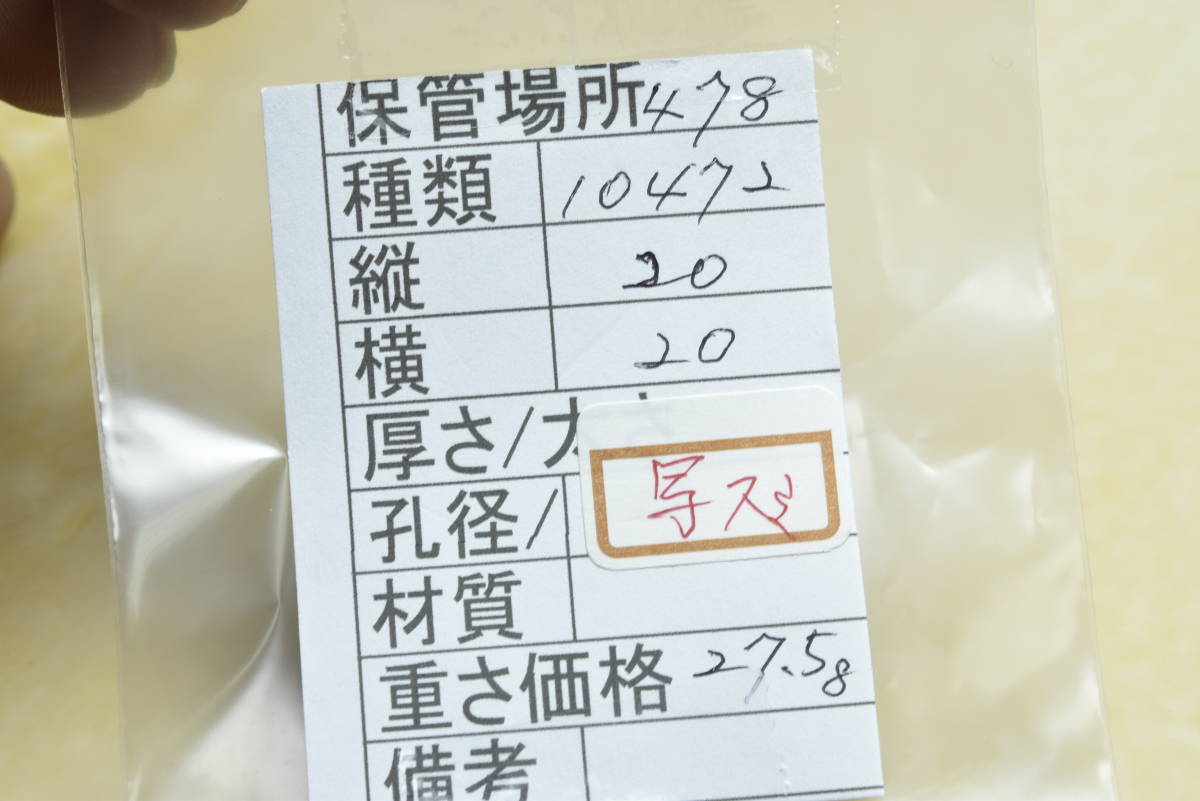 保管場所 478
種類 10472
縦 20
横 20
厚さ/
孔径/
写スミ
材質
重さ価格 27.5g
備考